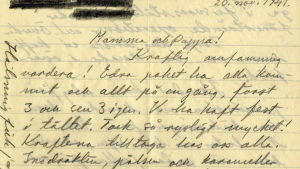 20. nov. 1941.
Mamma och Pappa!
Kraftig
vordera! Edra paket ha alla kom-
mit och allt på en gång, först
3 och sen 3 igen. Vi ha haft fest
i tältet. Tack så rysligt mycket!
Krafterna tilltaga hos oss alla.
pälsen och karameller